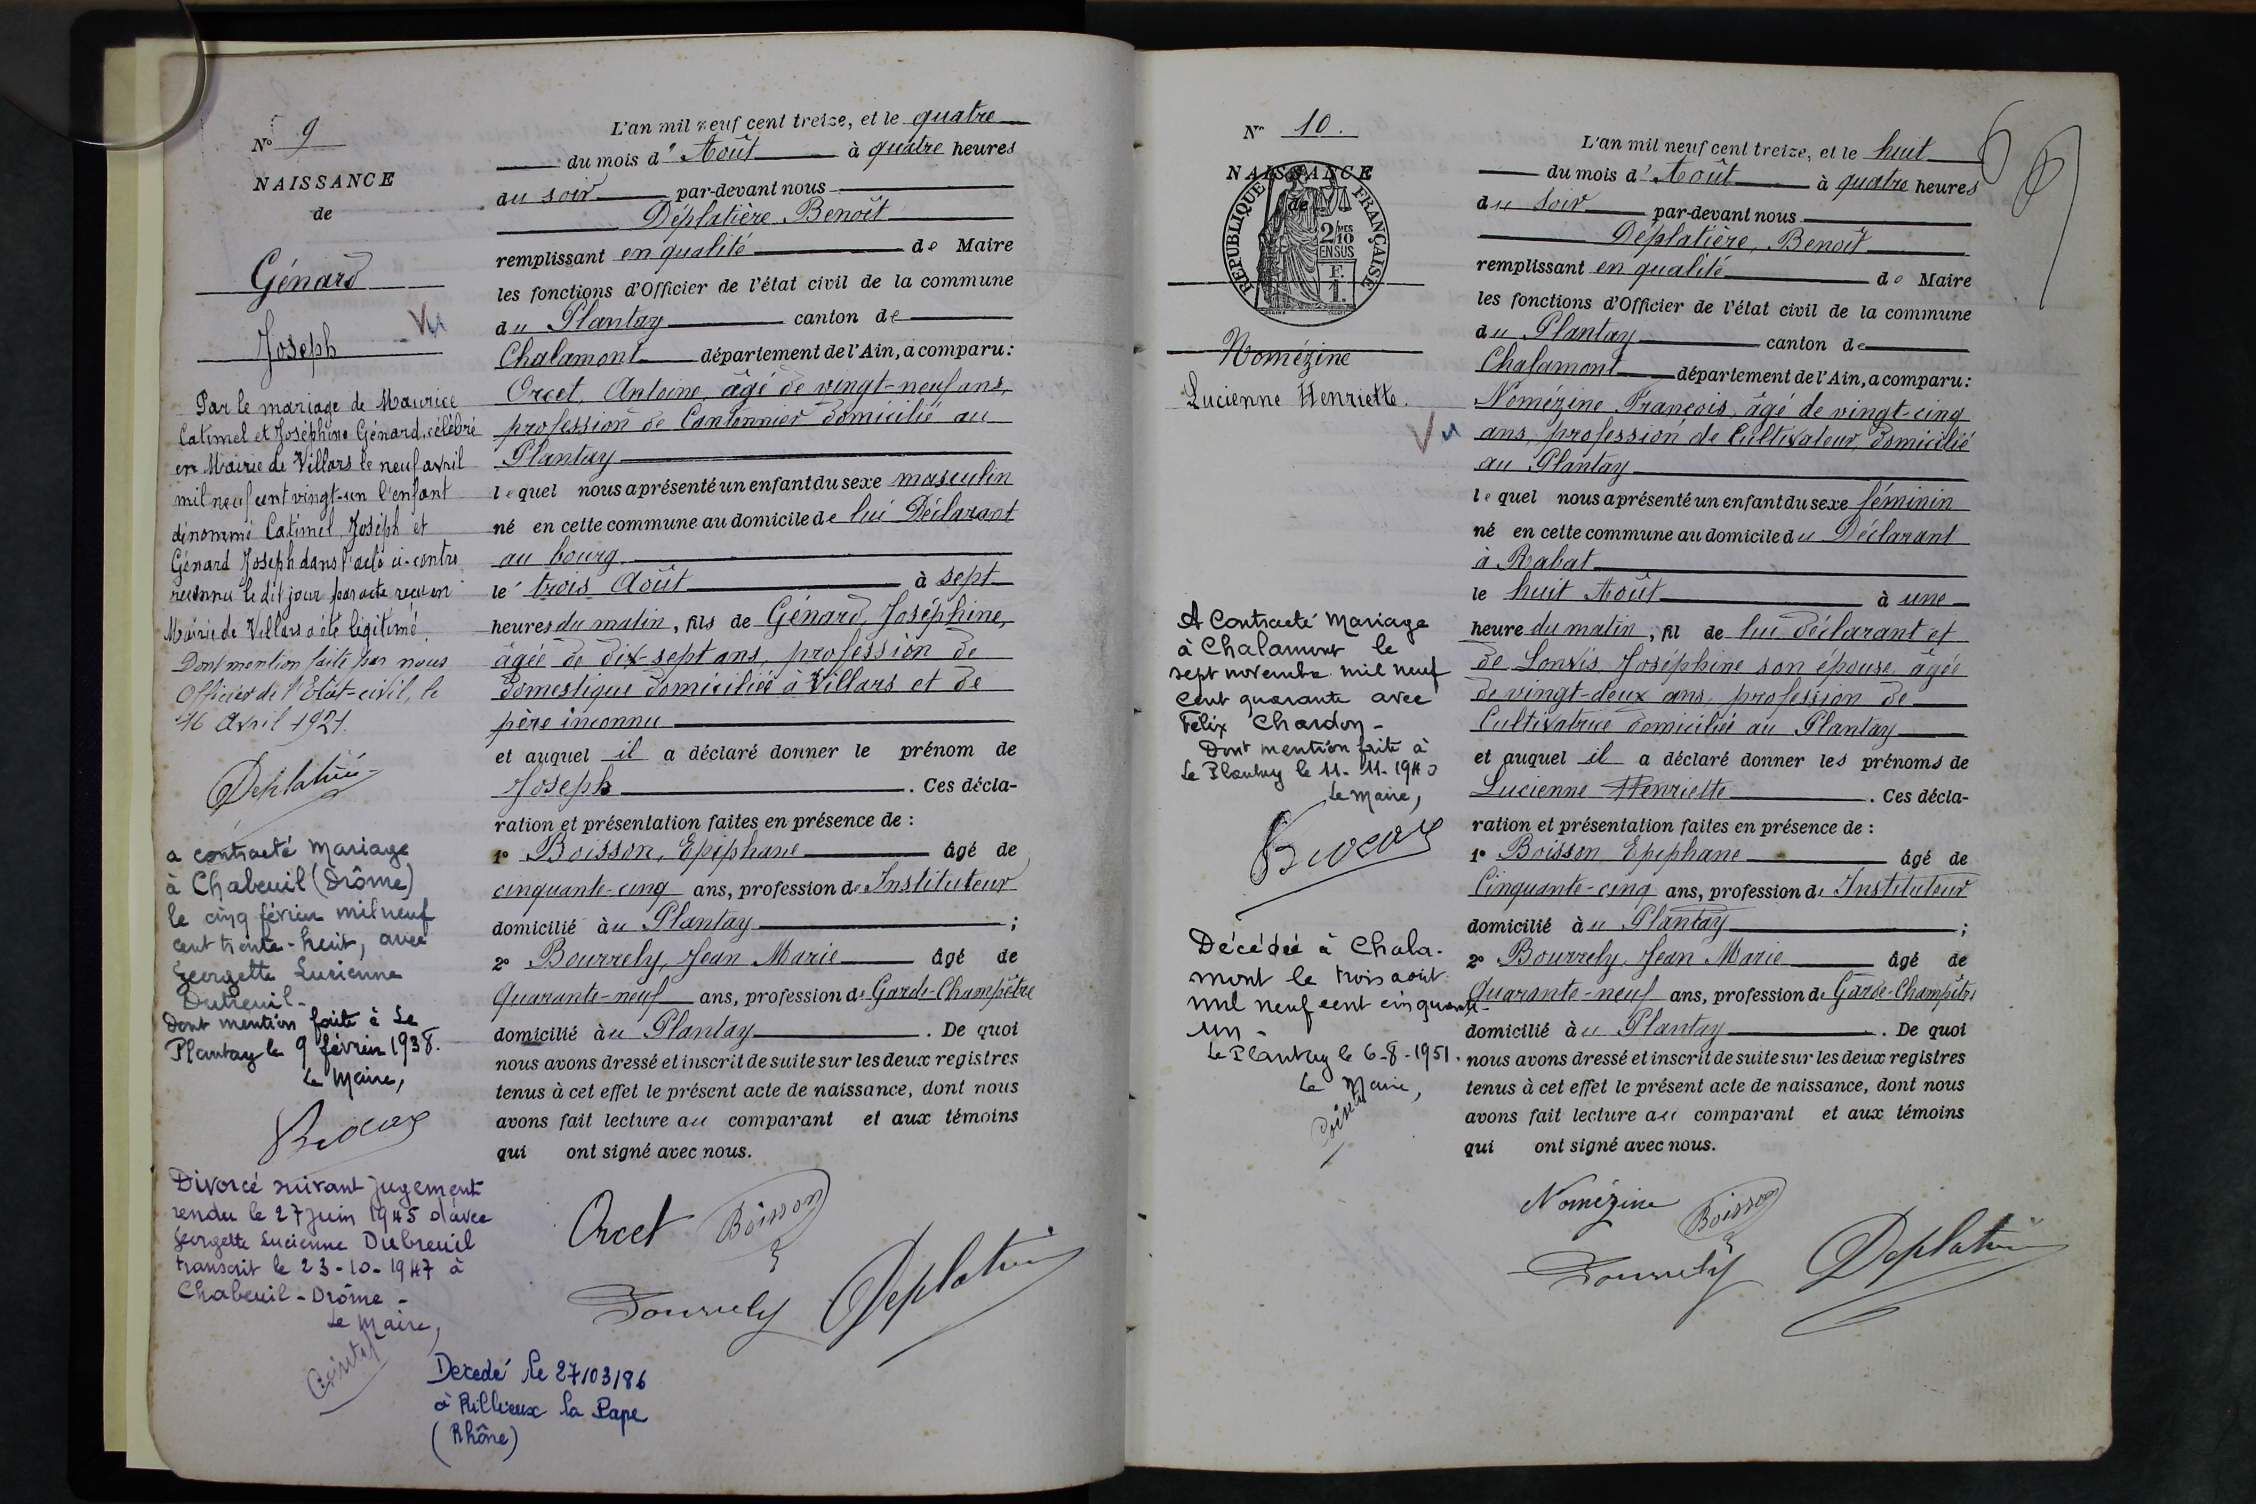 N° 9
NAISSANCE
de
Génard
Joseph
Vu
Par le mariage de Maurice
Catimel et Joséphine Génard, célébré
en Mairie de Villars le neuf avril
mil neuf cent vingt-un l'enfant
dénommé Catimel Joseph et
Génard Joseph dans l'acte ci-contre
reconnu le dit jour par acte reçu en
Mairie de Villars a été légitimé.
Dont mention faite par nous
Officier de l'Etat-civil, le
16 Avril 1921.
Déplatière
a contracté Mariage
à Chabeuil (Drôme)
le cinq février mil neuf
cent trente-huit, avec
Georgette Lucienne
Dutreuil-
dont mention faite à Le
Plantay le 9 février 1938.
Le Maire,
Divorcé suivant jugement
rendu le 27 juin 1945 d'avec
Georgette Lucienne Dubreuil
transcrit le 23-10-1947 à
Chabeuil - Drôme -
Le Maire,
L'an mil neuf cent treize, et le quatre
du mois d' Août à quatre heures
du soir par-devant nous
Déplatière Benoît
remplissant en qualité de Maire
les fonctions d'Officier de l'état civil de la commune
du Plantay canton de
Chalamont département de l'Ain, a comparu:
Orcet, Antoine, âgé de vingt-neuf ans,
profession de Cantonnier domicilié au
Plantay
lequel nous a présenté un enfant du sexe masculin
né en cette commune au domicile de lui Déclarant
au bourg
le trois Août à sept
heures du matin, fils de Génard, Joséphine,
âgée de dix-sept ans, profession de
domestique domiciliée à Villars et de
père inconnu
et auquel il a déclaré donner le prénom de
Joseph. Ces décla-
ration et présentation faites en présence de :
1° Boisson, Epiphane âgé de
cinquante-cinq ans, profession d'Instituteur
domicilié au Plantay ;
2° Bourrely, Jean Marie âgé de
Quarante-neuf ans, profession de Garde-Champêtre
domicilié au Plantay. De quoi
nous avons dressé et inscrit de suite sur les deux registres
tenus à cet effet le présent acte de naissance, dont nous
avons fait lecture au comparant et aux témoins
qui ont signé avec nous.
Orcet Boisson
Bourrely Déplatière
Decedé le 27/03/86
à Rillieux la Pape
(Rhône)
N° 10.
NAISSANCE
de
RÉPUBLIQUE FRANÇAISE
2/10 MES
EN SUS
F.
1.
Nomézine
Lucienne Henriette.
Vu
A Contracté Mariage
à Chalamont le
sept novembre mil neuf
cent quarante avec
Félix Chardon -
Dont mention faite à
Le Plantay le 11-11-1940
Le Maire,
Décédée à Chala-
mont le trois août
mil neuf cent cinquante-
un -
Le Plantay le 6-8-1951.
Le Maire,
L'an mil neuf cent treize, et le huit
du mois d' Août à quatre heures
du soir par-devant nous
Déplatière, Benoît
remplissant en qualité de Maire
les fonctions d'Officier de l'état civil de la commune
du Plantay canton de
Chalamont département de l'Ain, a comparu:
Nomézine François, âgé de vingt-cinq
ans, profession de Cultivateur, domicilié
au Plantay
lequel nous a présenté un enfant du sexe féminin
né en cette commune au domicile du Déclarant
à Rabat
le huit Août à une
heure du matin, fil de lui déclarant et
de Lonvis, Joséphine son épouse, âgée
de vingt-deux ans, profession de
Cultivatrice domiciliée au Plantay
et auquel il a déclaré donner les prénoms de
Lucienne Henriette. Ces décla-
ration et présentation faites en présence de :
1° Boisson Epiphane âgé de
Cinquante-cinq ans, profession d'Instituteur
domicilié au Plantay ;
2° Bourrely, Jean Marie âgé de
Quarante-neuf ans, profession de Garde-Champêtre
domicilié au Plantay. De quoi
nous avons dressé et inscrit de suite sur les deux registres
tenus à cet effet le présent acte de naissance, dont nous
avons fait lecture au comparant et aux témoins
qui ont signé avec nous.
Nomézine Boisson
Bourrely Déplatière